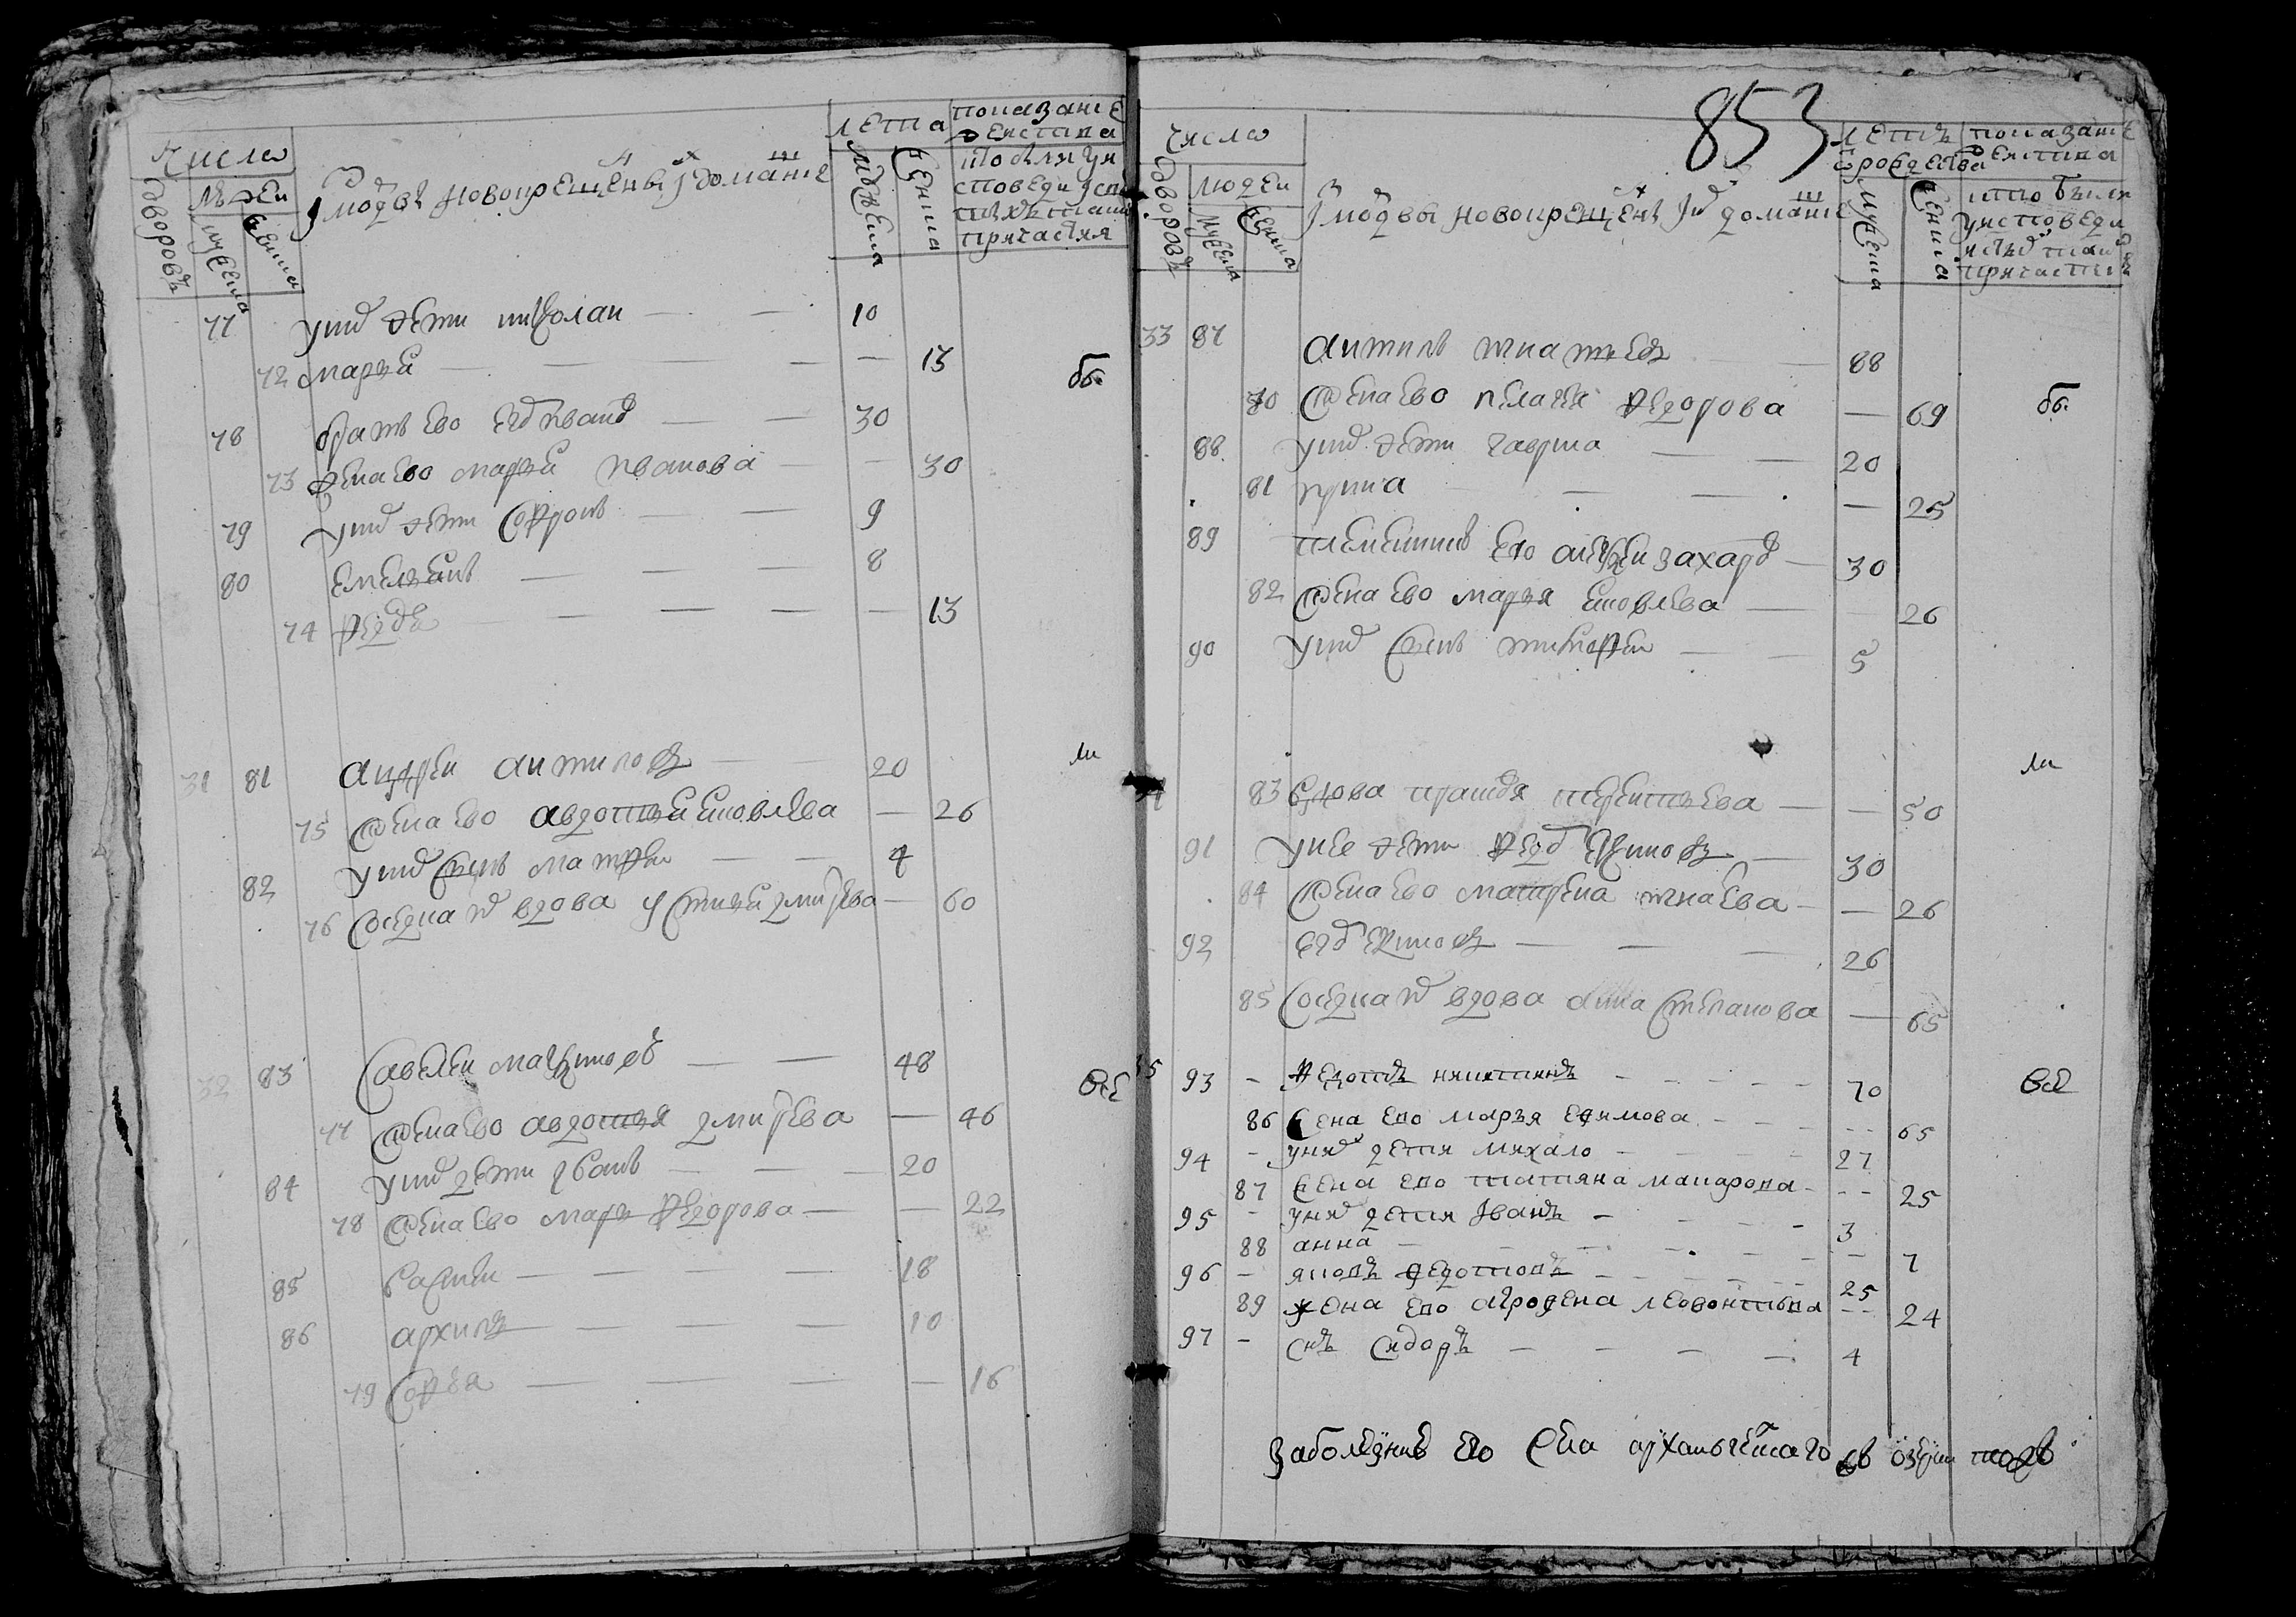 числа
дворовъ
людеи
мужеска
женска
Iмордвы новокрещены I домашние
лета
мужеска
женска
показание
действа
кто были у исповеди I с[вя]тыхъ таин причастия
77 у них дети николаи — 10
72 марья — 13
бы
78 братъ ево егоръ Iвановъ — 30
73 жена ево марья Iванова — 30
79 у них дети софронъ — 9
80 емельянъ — 8
74 федора — 13
31 81 андреи антиповъ — 20
ли
75 жена ево авдотья яковлева — 26
82 у них сынъ матфеи — 4
76 соседка их вдова устинья дмитрева — 60
32 83 савелеи максимовъ — 48
все
77 жена ево авдотья дмитрева — 46
84 у них дети Iванъ — 20
78 жена ево марья федорова — 22
85 василеи — 18
86 архипъ — 10
79 софья — 16
853
числа
дворовъ
людеи
мужеска
женска
Iмордвы новокрещены I их домашние
летъ от рождества
мужеска
женска
показание
действа
кто были у исповеди и с[вя]тыхъ таин причастия
33 87 антипъ игнатьевъ — 88
80 жена ево пелагея федорова — 69
бы
88 у них дети гаврила — 20
81 ирина — 25
89 племянникъ ево алексеи захаровъ — 30
82 жена ево марья яковлева — 26
90 у них сынъ тимофеи — 5
83 вдова прасковья терентьева — 50
ли
91 у нее дети федоръ ефимовъ — 30
84 жена ево матрена игнаева — 26
92 егоръ ефимовъ — 26
85 соседка их вдова анна степанова — 65
35 93 — федотъ никитинъ — 70
все
86 жена ево марья ефимова — 65
94 — у них дети михало — 27
87 жена ево татяна макарова — 25
95 — у них дети Iванъ — 3
88 анна — 7
96 — яковъ федотовъ — 25
89 жена ево агрофена леовонтьва — 24
97 — снъ сидоръ — 4